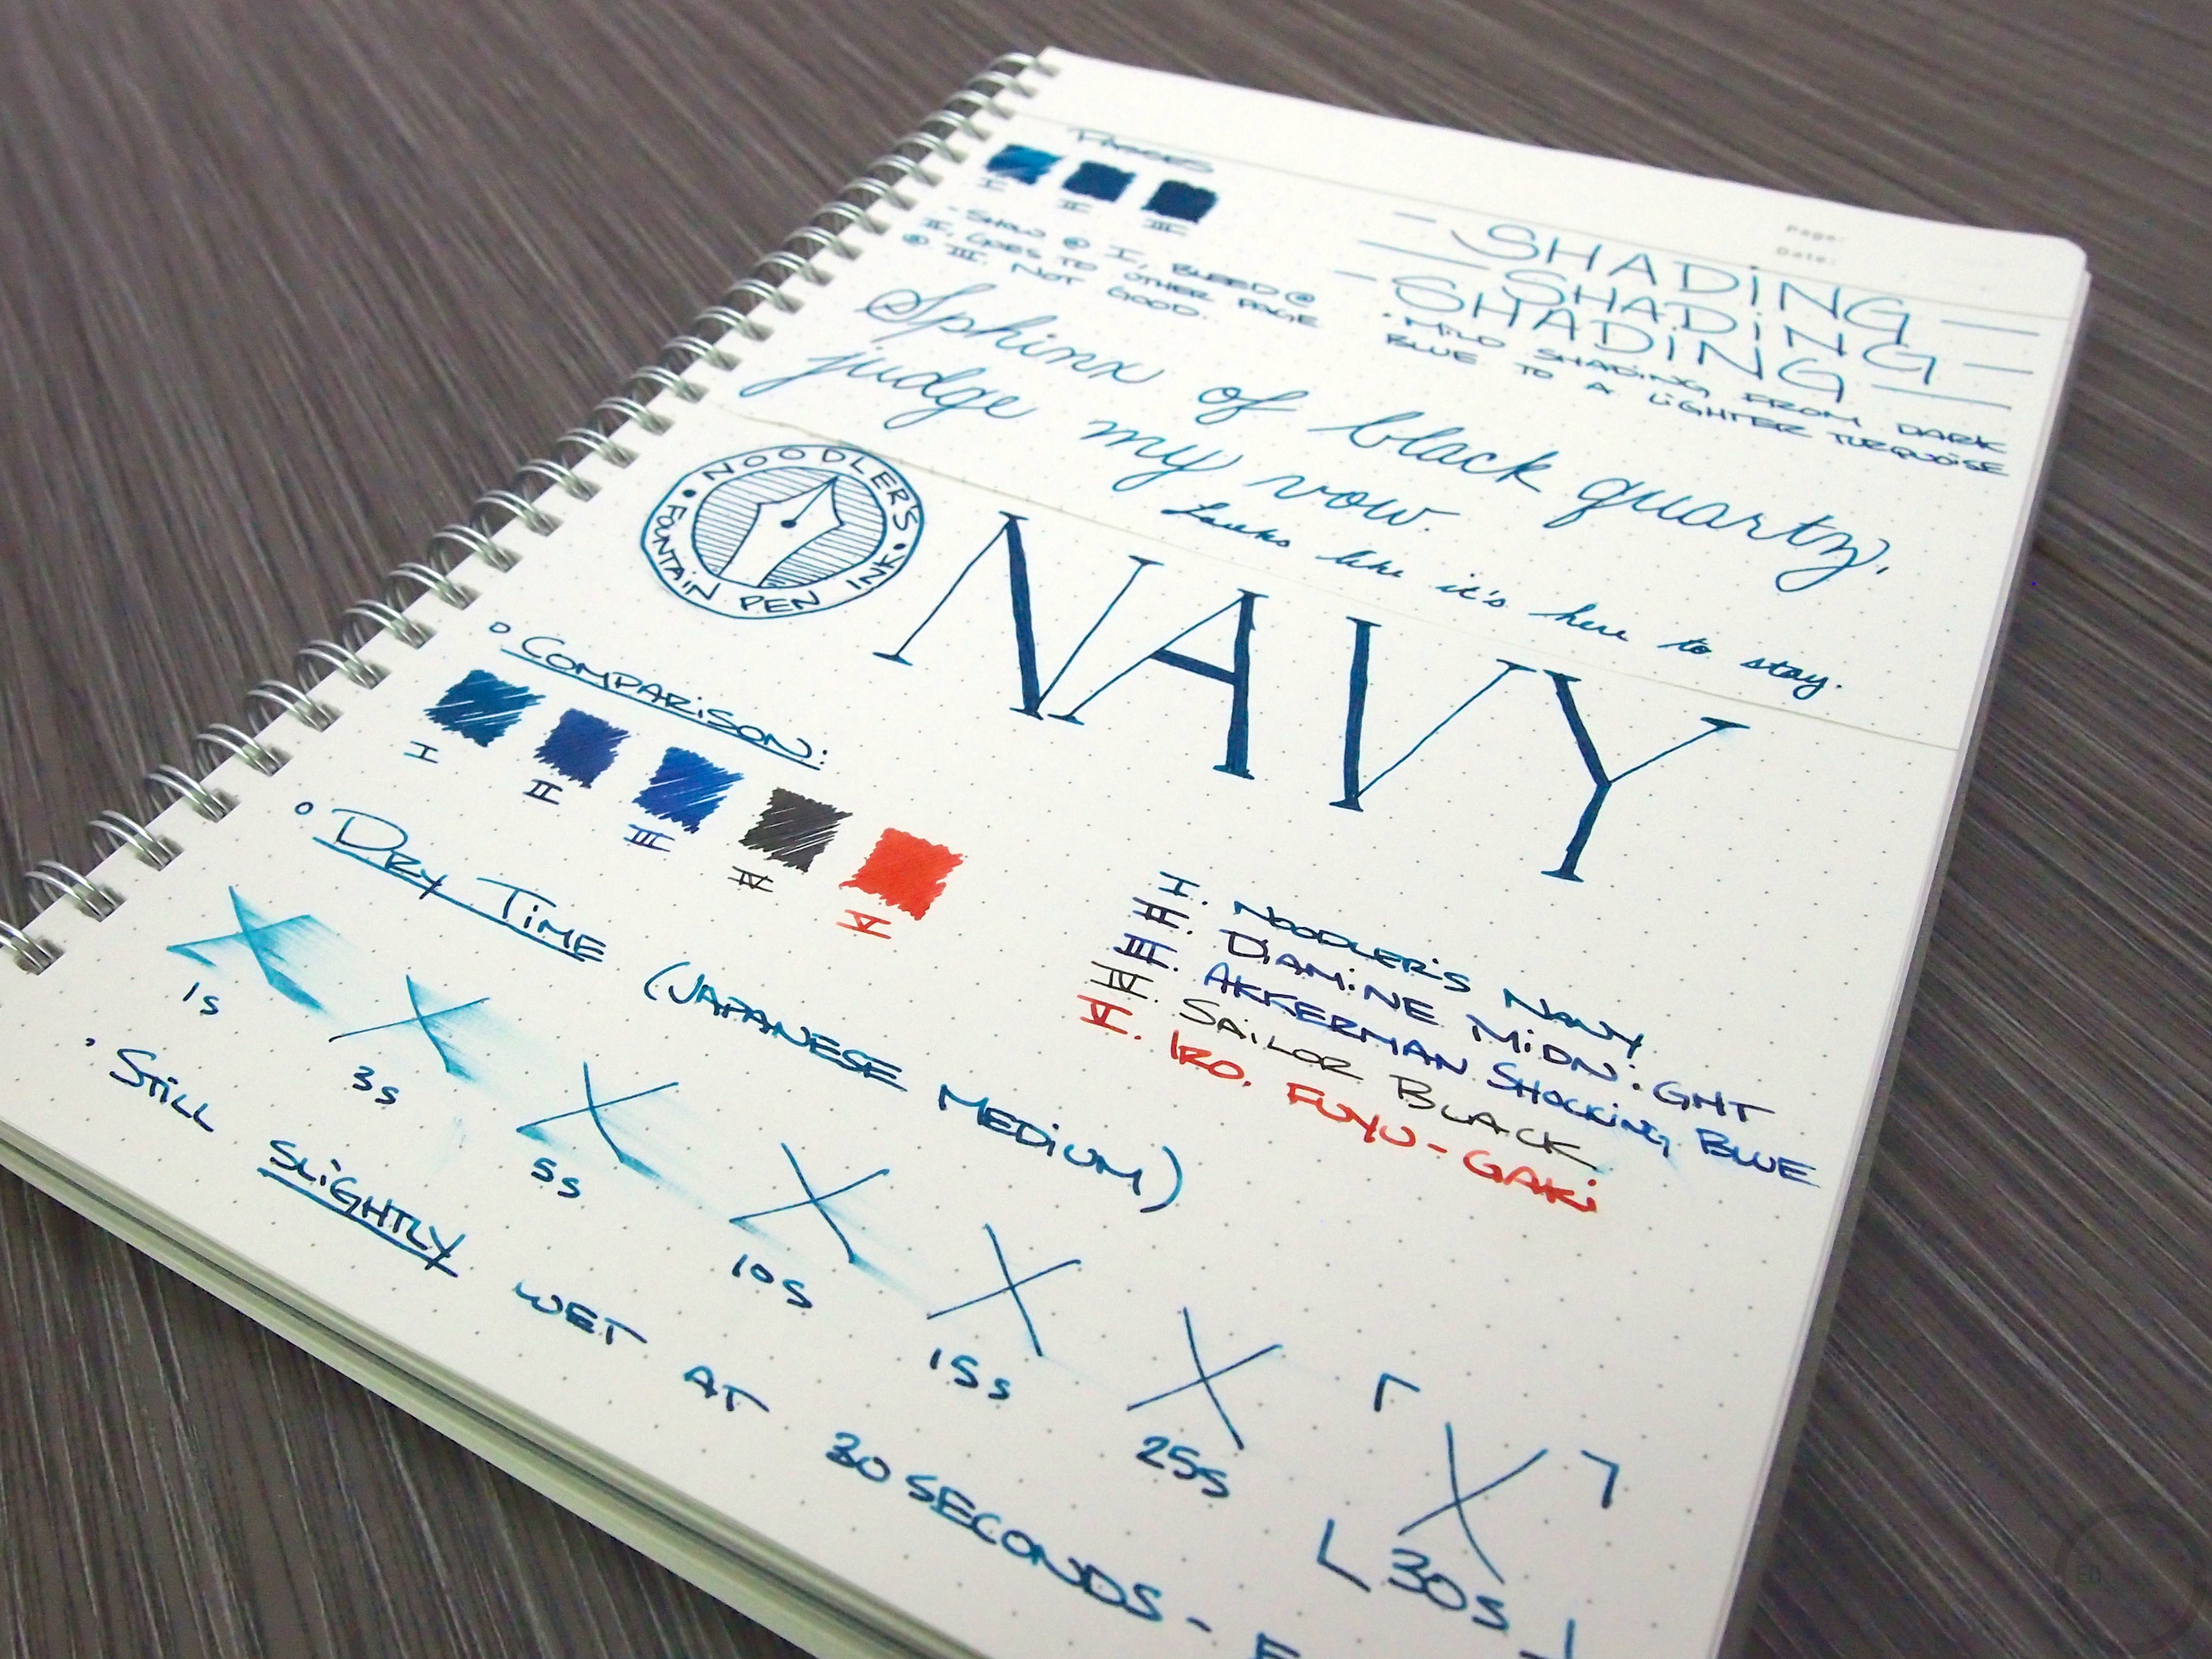 Page:
Date:
PASSES
I II III
- SHOW @ I, BLEED @
II, GOES TO OTHER PAGE
@ III. NOT GOOD.
SHADING
SHADING
SHADING
· MILD SHADING FROM DARK
BLUE TO A LIGHTER TURQUOISE
Sphinx of black quartz,
judge my vow.
Looks like it's here to stay.
NOODLER'S
FOUNTAIN PEN INK
NAVY
COMPARISON:
I II III IV V
I. NOODLER'S NAVY
II. DIAMINE MIDNIGHT
III. AKKERMAN SHOCKING BLUE
IV. SAILOR BLACK
V. IRO. FUYU-GAKI
DRY TIME (JAPANESE MEDIUM)
1s 3s 5s 10s 15s 25s 30s
· STILL SLIGHTLY WET AT 30 SECONDS -
ED